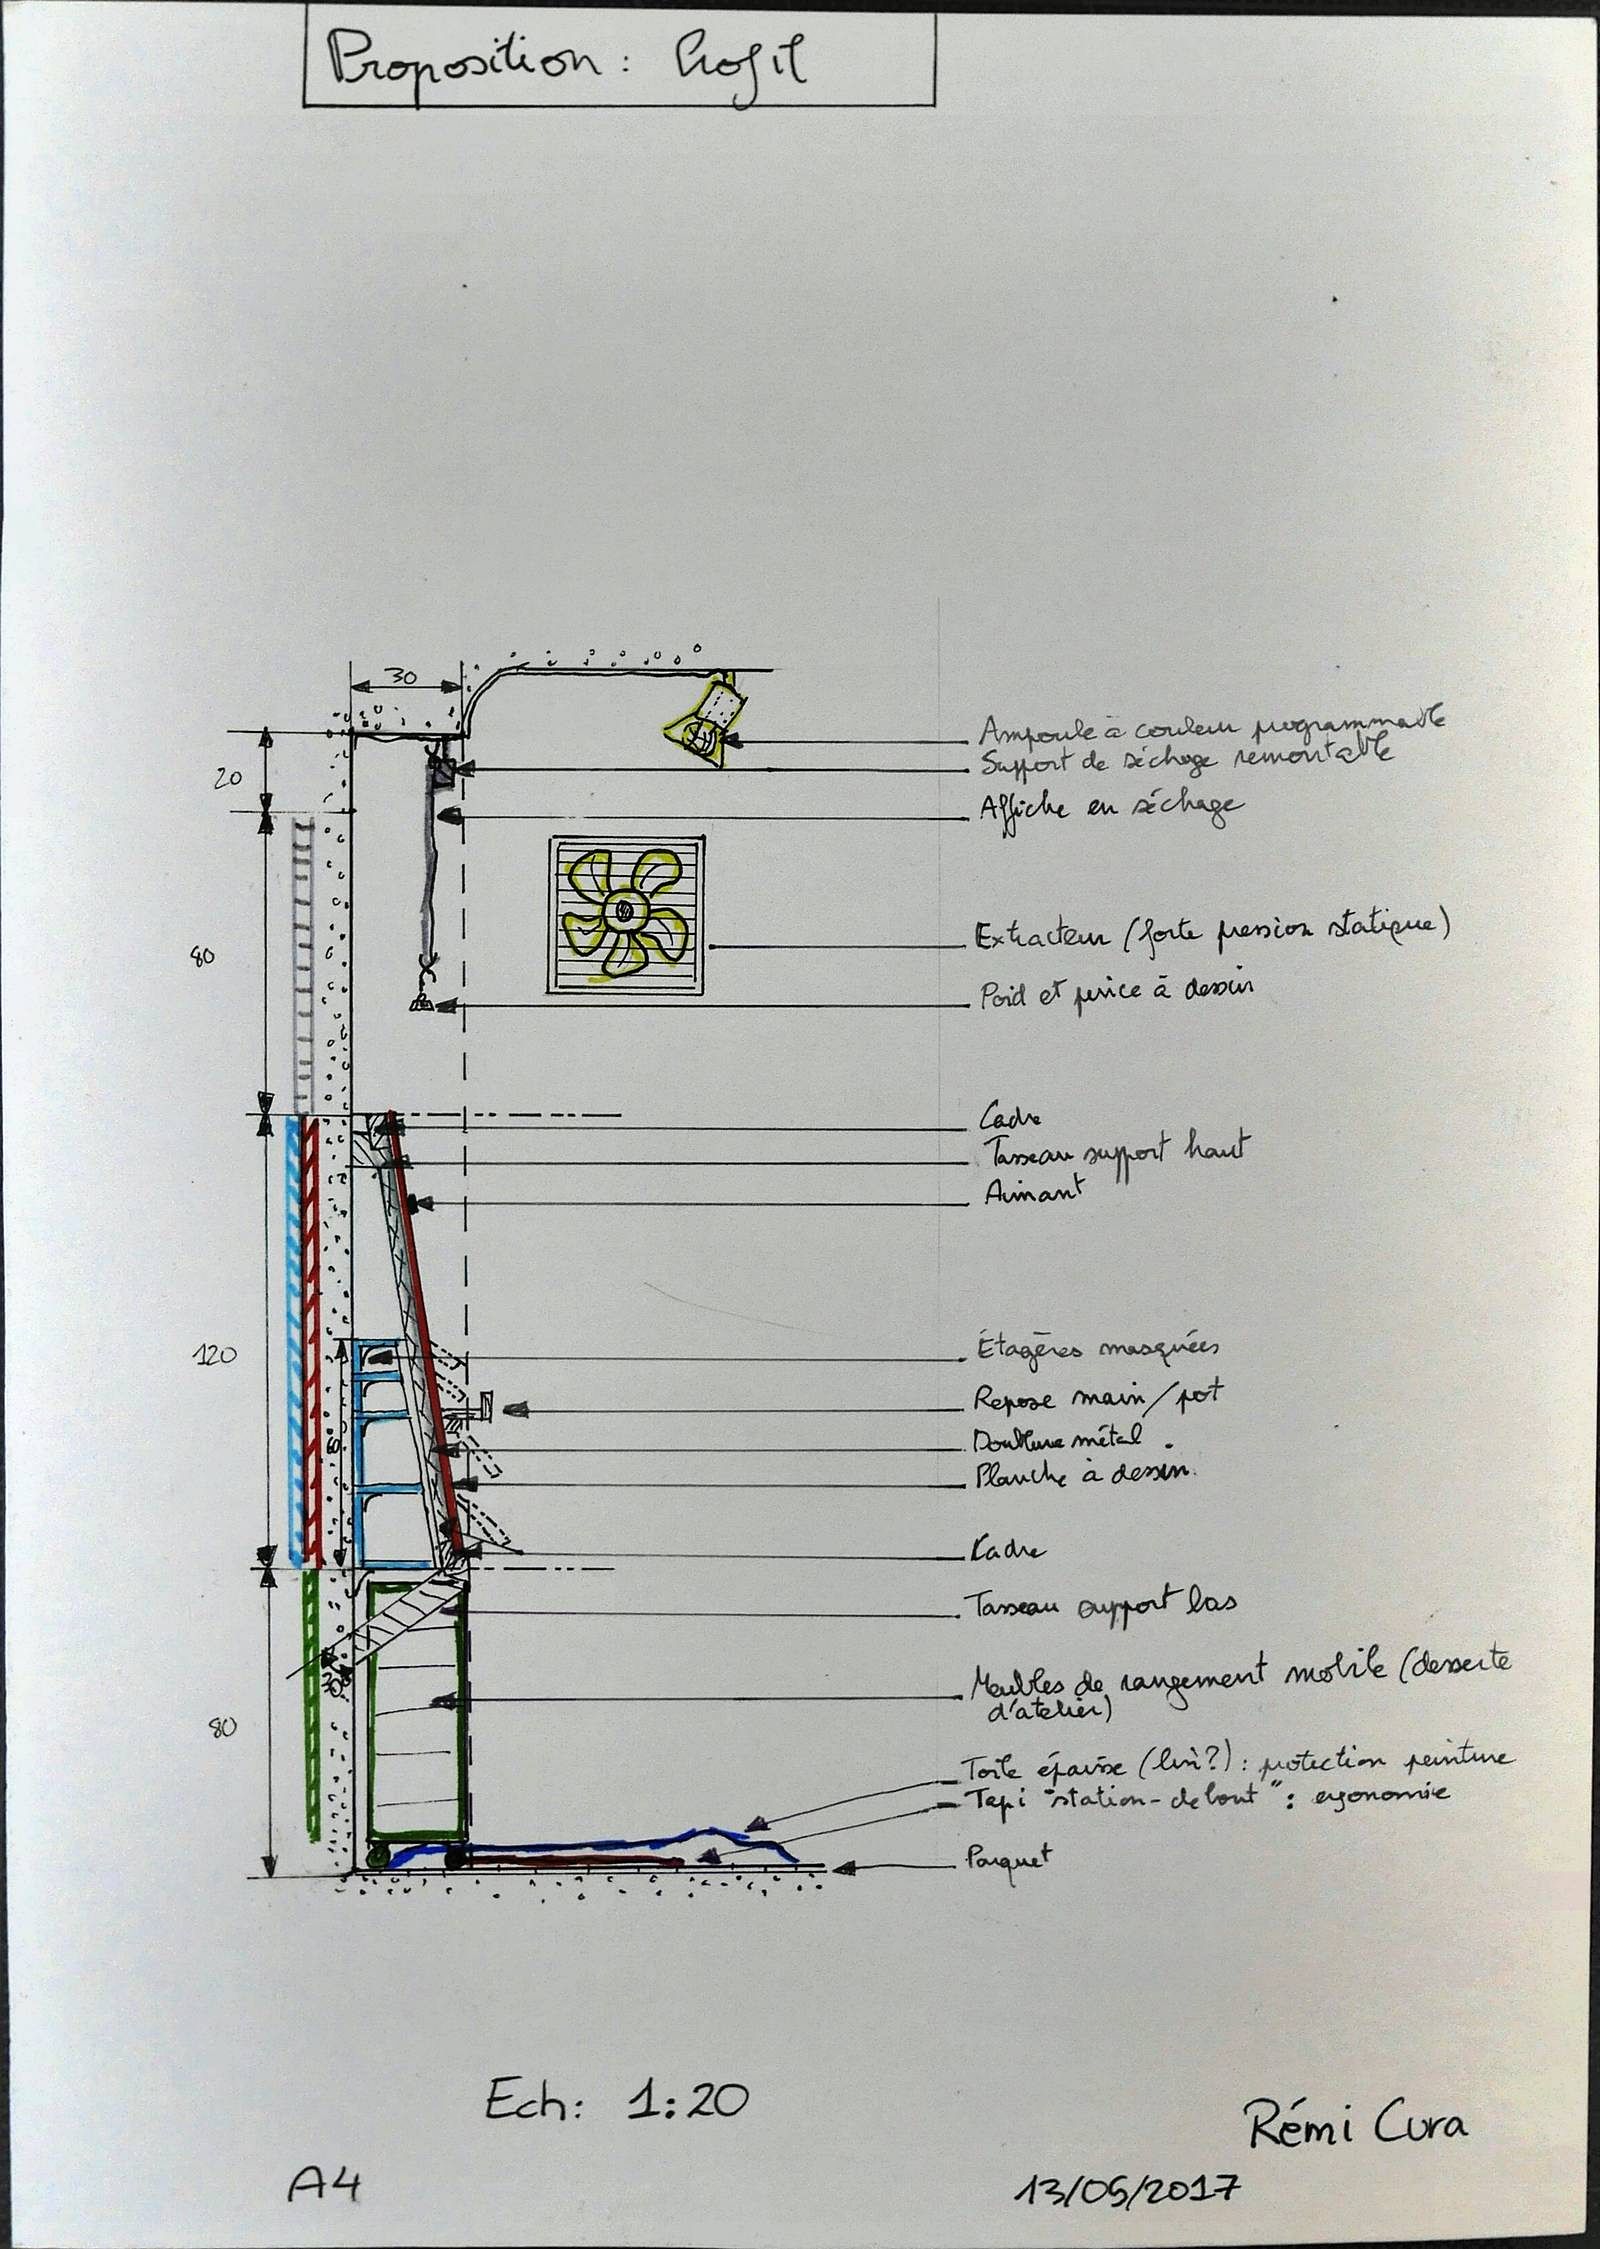 Proposition : Profil
30
Ampoule à couleur programmable
Support de séchage remontable
20
Affiche en séchage
Extracteur (forte pression statique)
80
Poid et pince à dessin
Cadre
Tasseau support haut
Aimant
Étagères masquées
120
Repose main/pot
Doublure métal
60
Planche à dessin
Cadre
Tasseau support bas
Meubles de rangement mobile (desserte
d'atelier)
80
Toile épaisse (lin?) : protection peinture
Tapi "station-debout" : ergonomie
Parquet
Ech: 1:20
Rémi Cura
A4
13/05/2017